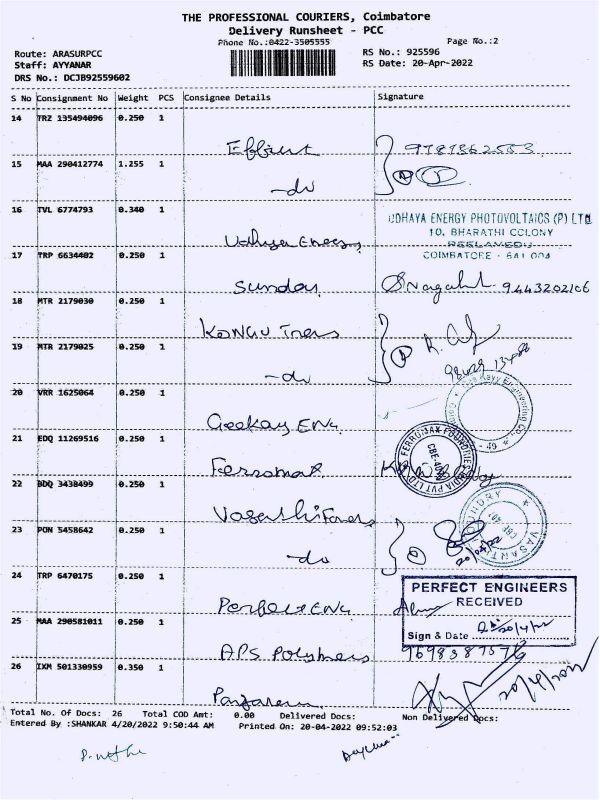 THE PROFESSIONAL COURIERS, Coimbatore
Delivery Runsheet - PCC
Phone No.:0422-3505555 Page No.:2
Route: ARASURPCC RS No.: 925596
Staff: AYYANAR RS Date: 20-Apr-2022
DRS No.: DCJB92559602
S No Consignment No Weight PCS Consignee Details Signature
14 TRZ 135494096 0.250 1
15 MAA 290412774 1.255 1
- do
16 TVL 6774793 0.340 1
UDHAYA ENERGY PHOTOVOLTAICS (P) LTD
10, BHARATHI COLONY
PEELAMEDU
COIMBATORE - 641 004
Udhaya Energy
17 TRP 6634402 0.250 1
Sunday 9443202106
18 MTR 2179030 0.250 1
19 MTR 2179025 0.250 1
- do
20 VRR 1625064 0.250 1
Geekay ENG.
21 EDQ 11269516 0.250 1
FERROMAX FOUNDRIES INDIA PVT LTD
Ferromax
22 BDQ 3438499 0.250 1
23 PON 5458642 0.250 1
- do
24 TRP 6470175 0.250 1
PERFECT ENGINEERS
RECEIVED
Sign & Date
Perfect ENG.
25 MAA 290581011 0.250 1
APS Polymers
26 IXM 501330959 0.350 1
Total No. Of Docs: 26 Total COD Amt: 0.00 Delivered Docs: Non Delivered Docs:
Entered By :SHANKAR 4/20/2022 9:50:44 AM Printed On: 20-04-2022 09:52:03